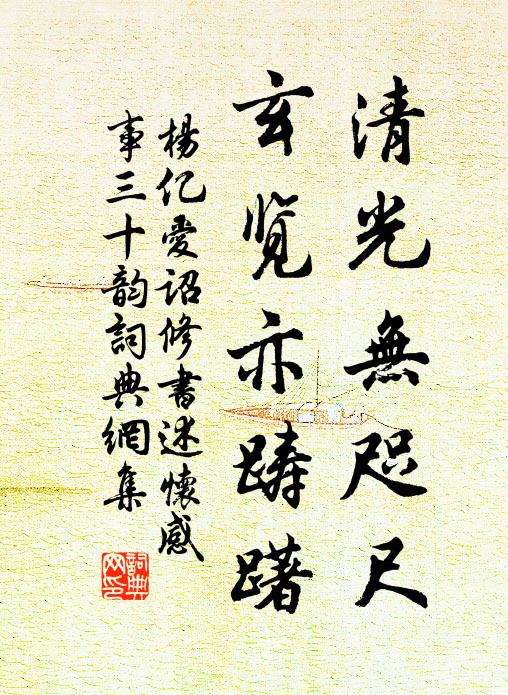 清光無咫尺
玄览亦踌躇
楊亿愛詔修書述懷感
事三十韵詞典網集
詞典网印